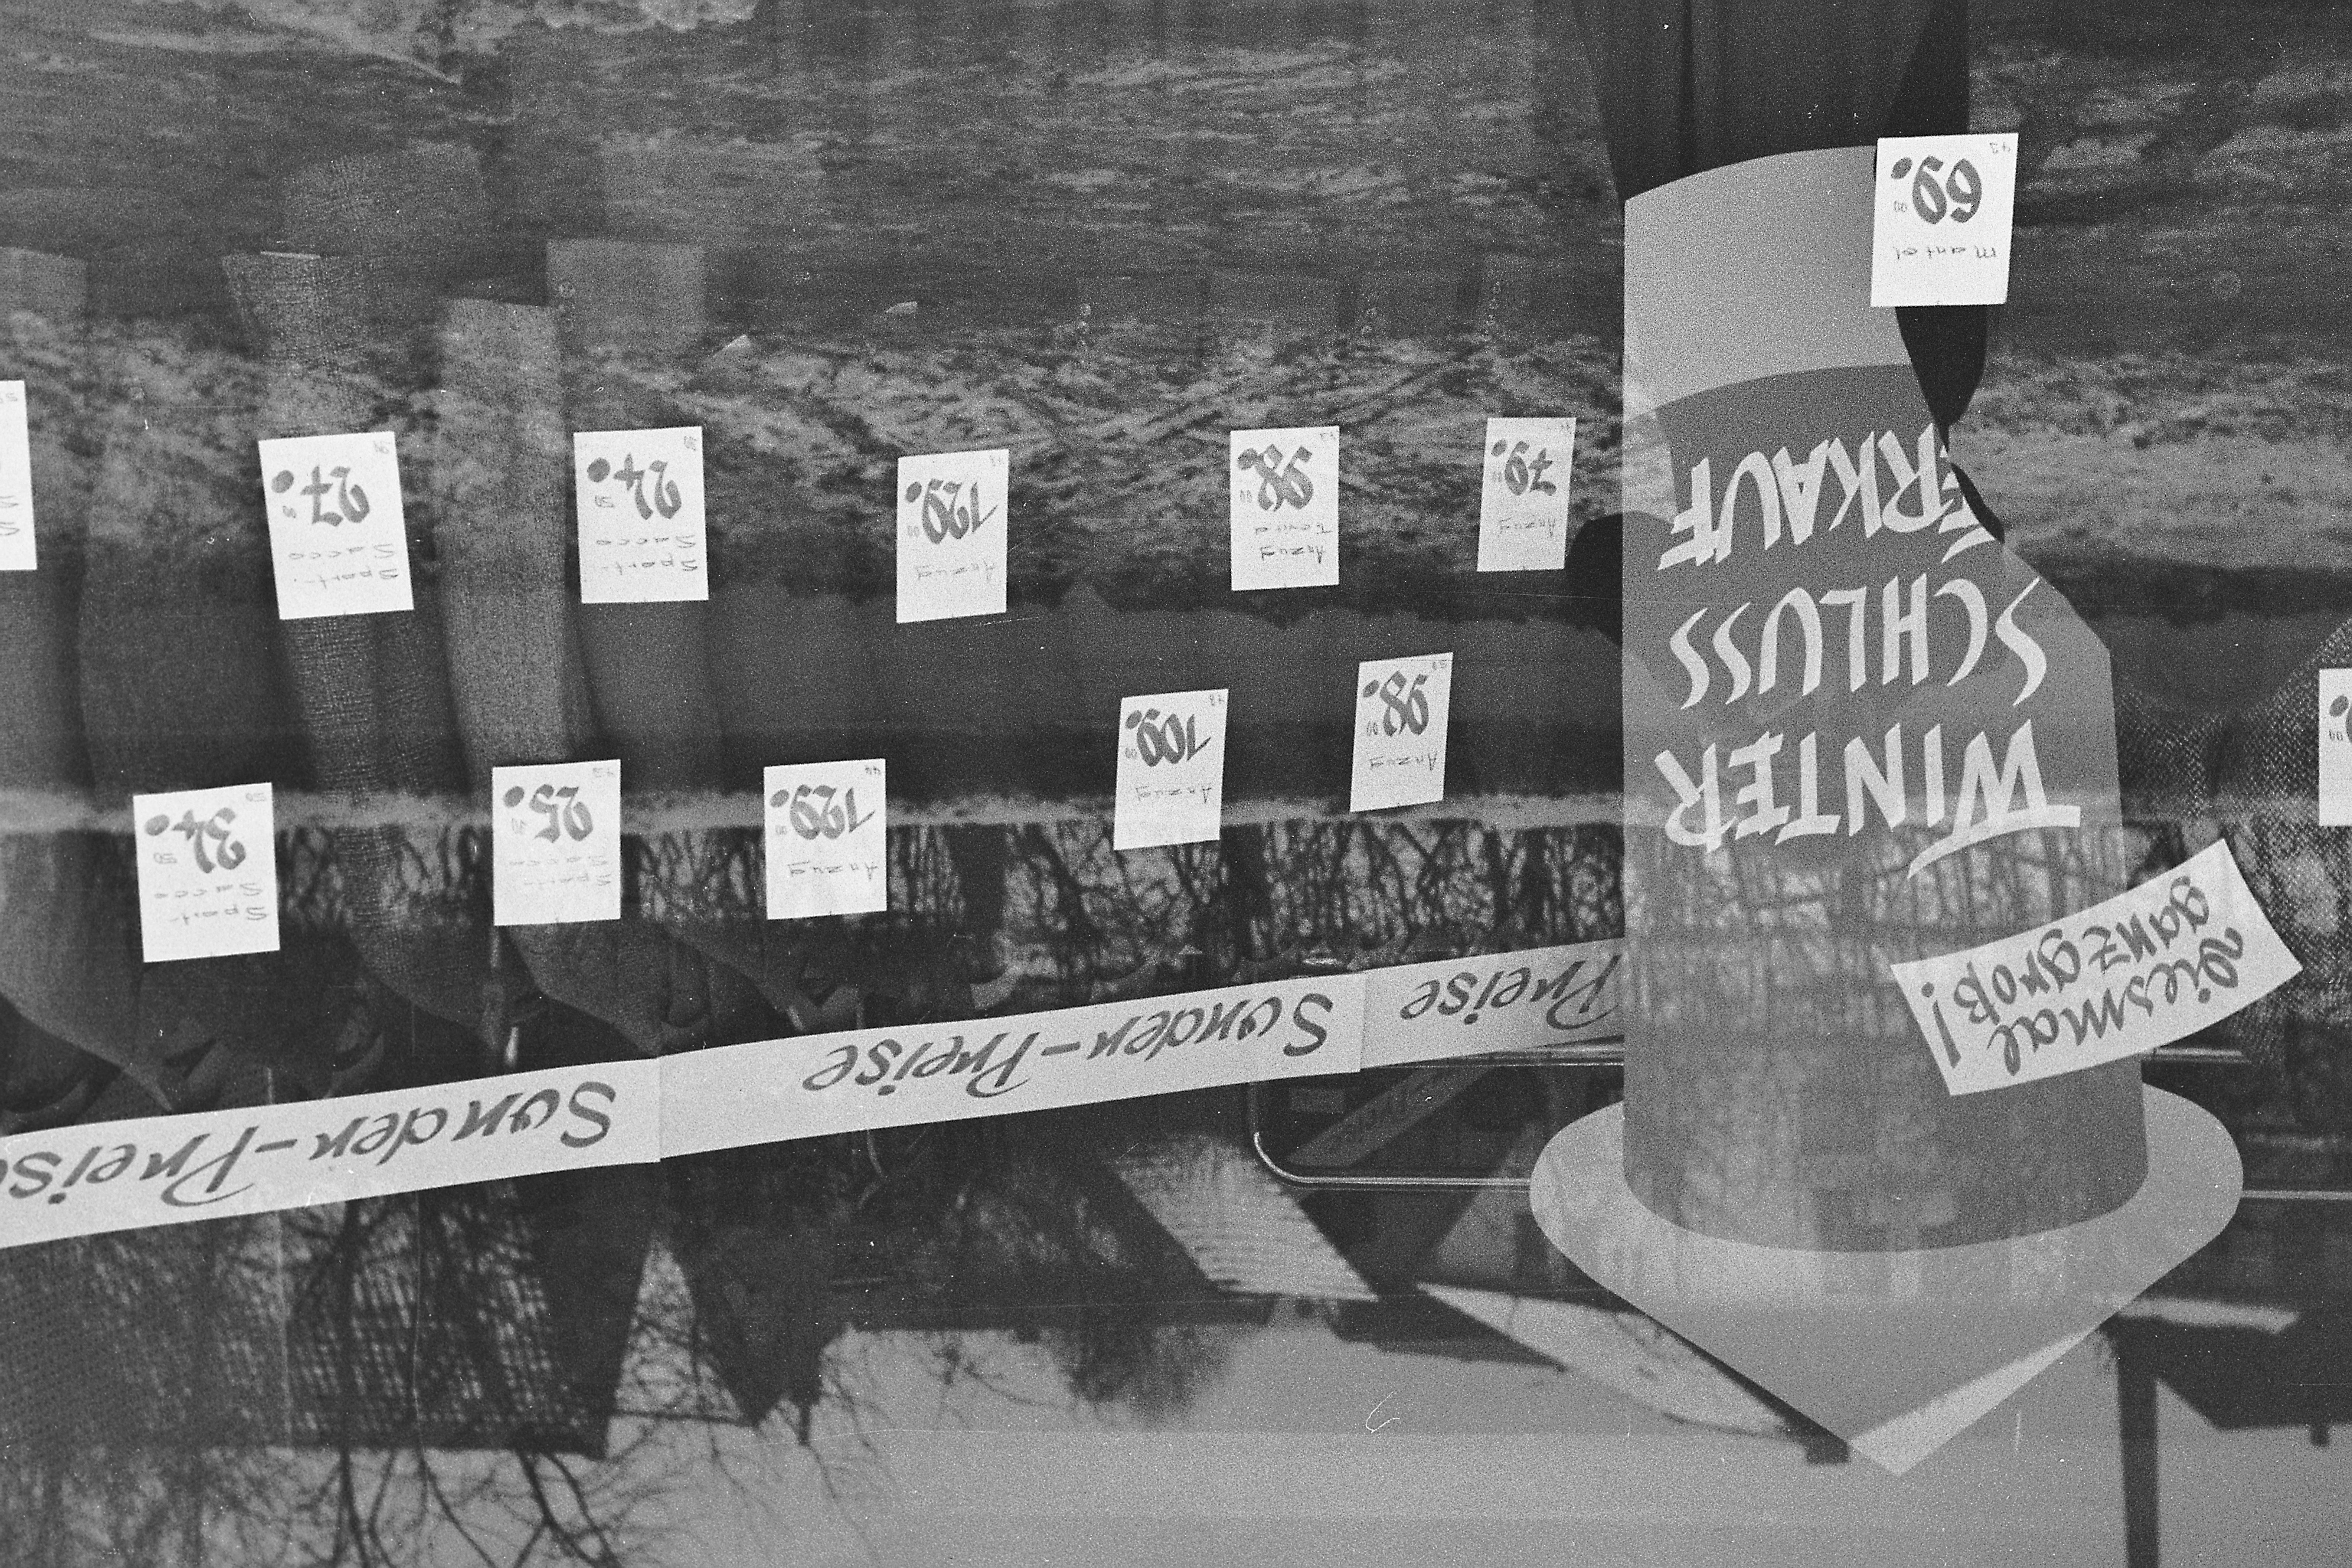 Diesmal
ganz groß!
WINTER
SCHLUSS
ERKAUF
Preise
Sonder-Preise
Sonder-Preise
Anzug
98.00
Anzug
109.00
Anzug
129.
Sport-
Sacco
25.
Sport-
Sacco
34.50
Anzug
79.00
Anzug
Trevira
98.00
Anzug
129.00
Sport-
Sacco
24.50
Sport-
Sacco
27.
Mantel
69.00